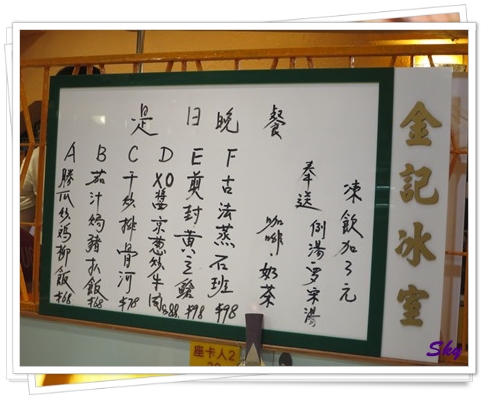 是日晚餐
A 勝瓜炒鷄柳飯 $68
B 茄汁焗豬扒飯 $68
C 干炒排骨河 $78
D XO醬京葱炒牛
E 煎封黄立鯧 $98
F 古法蒸石斑 $98
奉送
例湯·罗宋湯
咖啡 奶茶
凍飲加3元
金記冰室
座卡人2
Sky